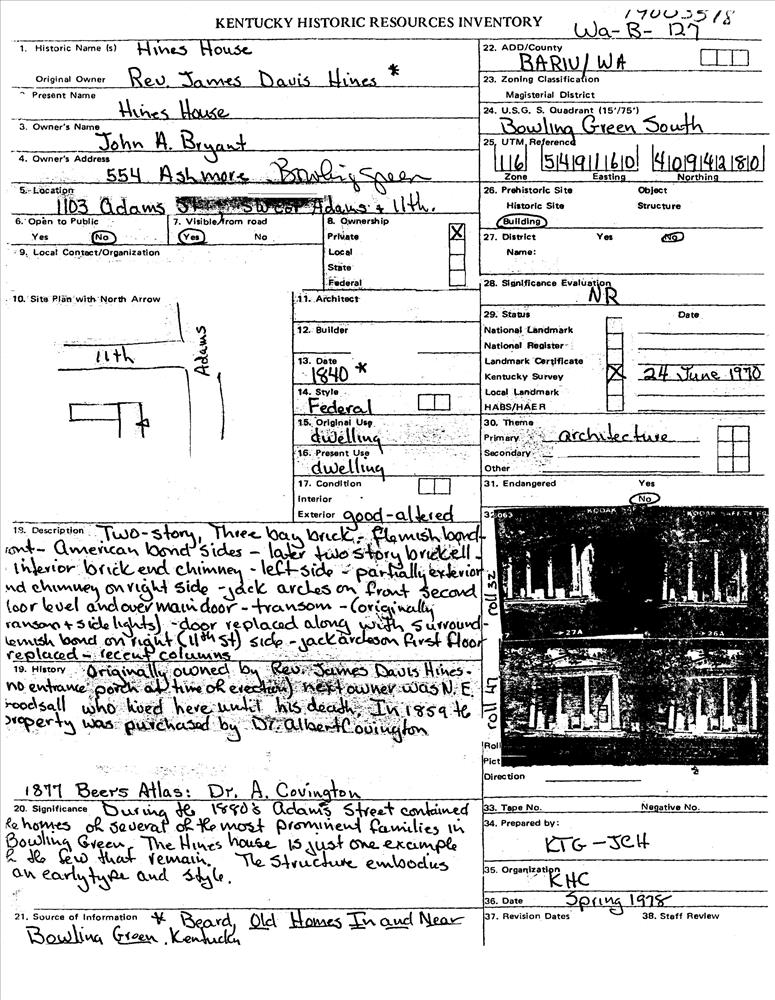 KENTUCKY HISTORIC RESOURCES INVENTORY
Wa-B-127
1. Historic Name (s) Hines House
Original Owner Rev. James Davis Hines *
Present Name
Hines House
3. Owner's Name
John A. Bryant
4. Owner's Address
554 Ashmore Bowling Green
5. Location
1103 Adams St. SW cor Adams + 11th.
6. Open to Public
Yes No
7. Visible from road
Yes No
8. Ownership
Private X
Local
State
Federal
9. Local Contact/Organization
10. Site Plan with North Arrow
11th
Adams
11. Architect
12. Builder
13. Date
1840 *
14. Style
Federal
15. Original Use
dwelling
16. Present Use
dwelling
17. Condition
Interior
Exterior good-altered
18. Description Two-story, Three bay brick - flemish bond
ont - American bond sides - later two story brick ell -
interior brick end chimney - left side - partially exterior
nd chimney on right side - jack arches on front second
loor level and over main door - transom - (originally
ransom + side lights) - door replaced along with surround -
lemish bond on right (11th St) side - jack arches on first floor
replaced - recent columns
19. History Originally owned by Rev. James Davis Hines -
no entrance porch at time of erection) next owner was N. E.
oodsall who lived here until his death. In 1859 the
property was purchased by Dr. Albert Covington
1877 Beers Atlas: Dr. A. Covington
20. Significance During the 1880's Adams Street contained
he homes of several of the most prominent families in
Bowling Green. The Hines house is just one example
of the few that remain. The structure embodies
an early type and style.
21. Source of Information * Beard, Old Homes In and Near
Bowling Green, Kentucky
22. ADD/County
BARIV/WA
23. Zoning Classification
Magisterial District
24. U.S.G. S. Quadrant (15'/75')
Bowling Green South
25. UTM Reference
16 549160 4094280
Zone Easting Northing
26. Prehistoric Site Object
Historic Site Structure
Building
27. District Yes No
Name:
28. Significance Evaluation
NR
29. Status Date
National Landmark
National Register
Landmark Certificate
Kentucky Survey X 24 June 1970
Local Landmark
HABS/HAER
30. Theme
Primary architecture
Secondary
Other
31. Endangered Yes
No
roll 32
27A 26A
roll 47
Roll
Pict
Direction
33. Tape No. Negative No.
34. Prepared by:
KTG-JCH
35. Organization
KHC
36. Date Spring 1978
37. Revision Dates 38. Staff Review